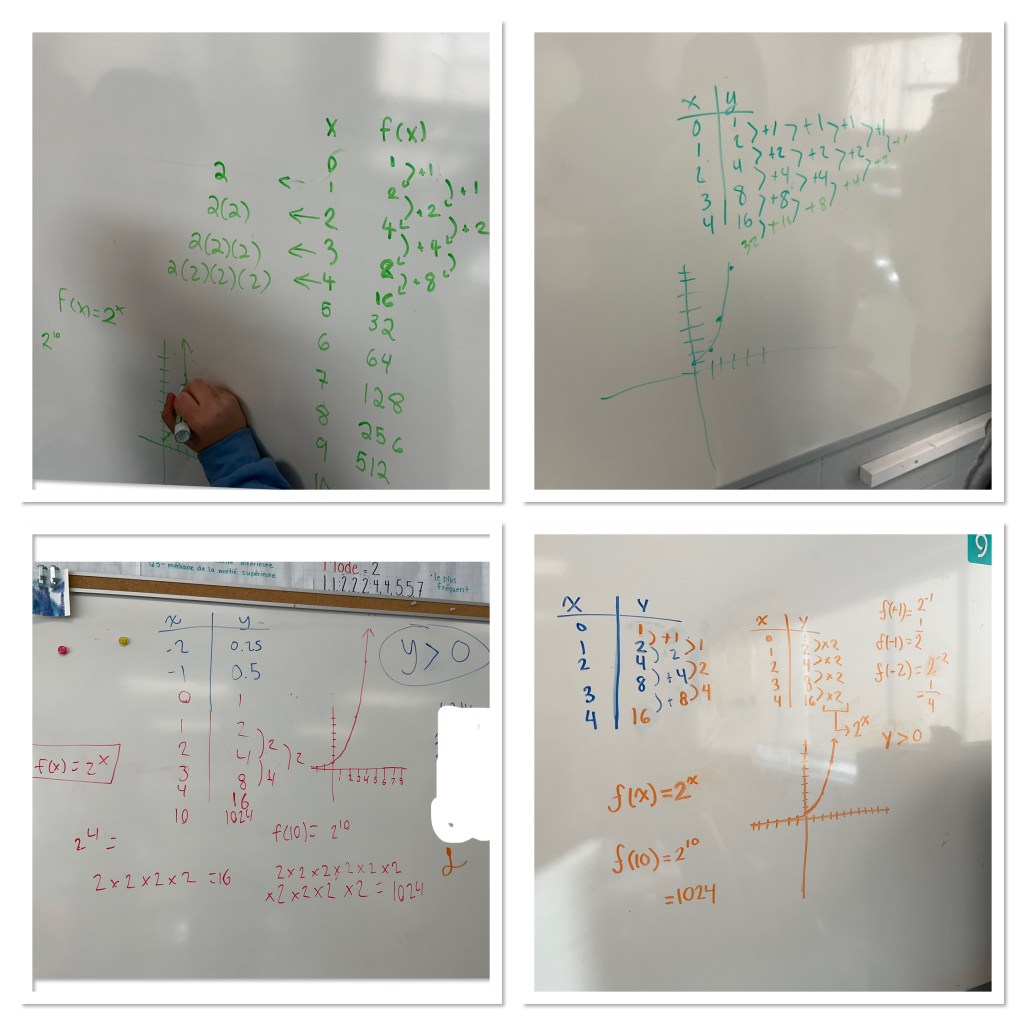 x f(x)
0 1 )+1
2 ← 1 2 )+1
2(2) ← 2 )+2
2(2)(2) ← 3 4 )+2
2(2)(2)(2) ← 4 )+4
8
)+8
16
5 32
6 64
7 128
8 256
9 512
10
f(x)=2ˣ
2¹⁰
x y
0 1 >+1 >+1 >+1 >+1
1 2 >+2 >+2 >+2
2 4 >+4 >+4 >+4
3 8 >+8 >+8
4 16 >+16
32
médiane de la moitié supérieure
Mode = 2
1,1,2,2,2,4,4,5,5,7
le plus fréquent
x y
-2 0.25
-1 0.5
0 1
1 2
2 4
3 8
4 16
10 1024
)2
)2
)4
y > 0
1 2 3 4 5 6 7 8
f(x) = 2ˣ
2⁴ =
2 x 2 x 2 x 2 = 16
f(10) = 2¹⁰
2 x 2 x 2 x 2 x 2 x 2
x 2 x 2 x 2 x 2 = 1024
9
X Y
0 1
1 2
2 4
3 8
4 16
)+1 >1
)2
)+4 >2
)+8 >4
x y
0 1
1 2
2 4
3 8
4 16
>x2
>x2
>x2
>x2
→2ˣ
f(-1)= 2⁻¹
f(-1)= 1/2
f(-2) = 2⁻²
= 1/4
y > 0
f(x) = 2ˣ
f(10) = 2¹⁰
= 1024